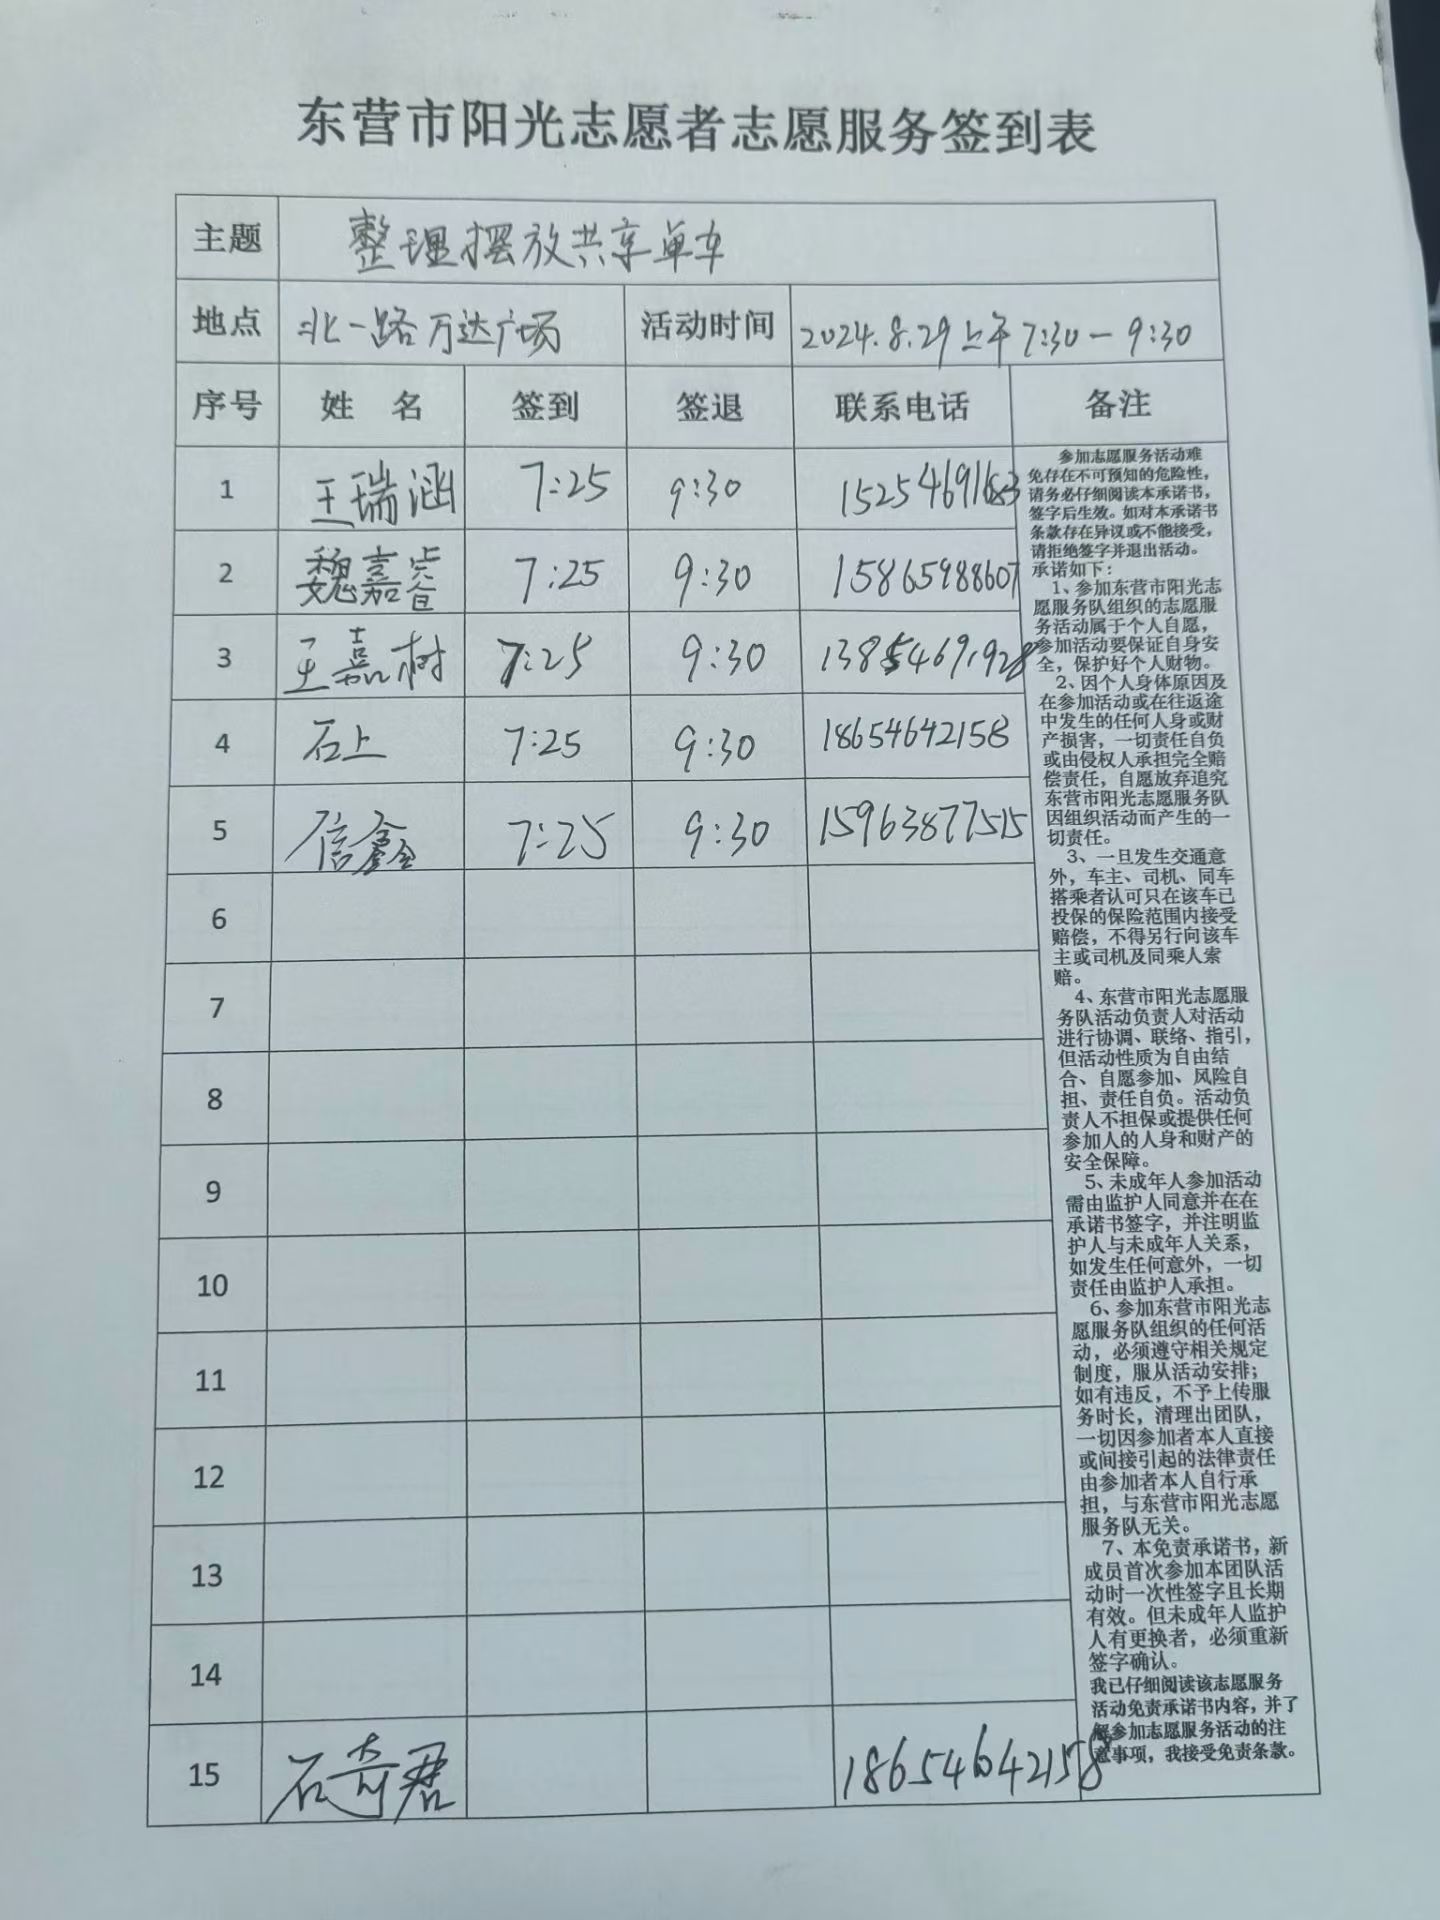 东营市阳光志愿者志愿服务签到表
主题 整理摆放共享单车
地点 北一路万达广场 活动时间 2024.8.29上午7:30-9:30
序号 姓 名 签到 签退 联系电话 备注
1 王瑞涵 7:25 9:30 15254691683
2 魏嘉睿 7:25 9:30 15865988607
3 王嘉树 7:25 9:30 13854691928
4 石上 7:25 9:30 18654642158
5 信鑫 7:25 9:30 15963877515
6
7
8
9
10
11
12
13
14
15 石奇君 18654642158
参加志愿服务活动难
免存在不可预知的危险性，
请务必仔细阅读本承诺书，
签字后生效。如对本承诺书
条款存在异议或不能接受，
请拒绝签字并退出活动。
承诺如下：
1、参加东营市阳光志
愿服务队组织的志愿服
务活动属于个人自愿，
参加活动要保证自身安
全，保护好个人财物。
2、因个人身体原因及
在参加活动或在往返途
中发生的任何人身或财
产损害，一切责任自负
或由侵权人承担完全赔
偿责任，自愿放弃追究
东营市阳光志愿服务队
因组织活动而产生的一
切责任。
3、一旦发生交通意
外，车主、司机、同车
搭乘者认可只在该车已
投保的保险范围内接受
赔偿，不得另行向该车
主或司机及同乘人索
赔。
4、东营市阳光志愿服
务队活动负责人对活动
进行协调、联络、指引，
但活动性质为自由结
合、自愿参加、风险自
担、责任自负。活动负
责人不担保或提供任何
参加人的人身和财产的
安全保障。
5、未成年人参加活动
需由监护人同意并在在
承诺书签字，并注明监
护人与未成年人关系，
如发生任何意外，一切
责任由监护人承担。
6、参加东营市阳光志
愿服务队组织的任何活
动，必须遵守相关规定
制度，服从活动安排；
如有违反，不予上传服
务时长，清理出团队，
一切因参加者本人直接
或间接引起的法律责任
由参加者本人自行承
担，与东营市阳光志愿
服务队无关。
7、本免责承诺书，新
成员首次参加本团队活
动时一次性签字且长期
有效。但未成年人监护
人有更换者，必须重新
签字确认。
我已仔细阅读该志愿服务
活动免责承诺书内容，并了
解参加志愿服务活动的注
意事项，我接受免责条款。